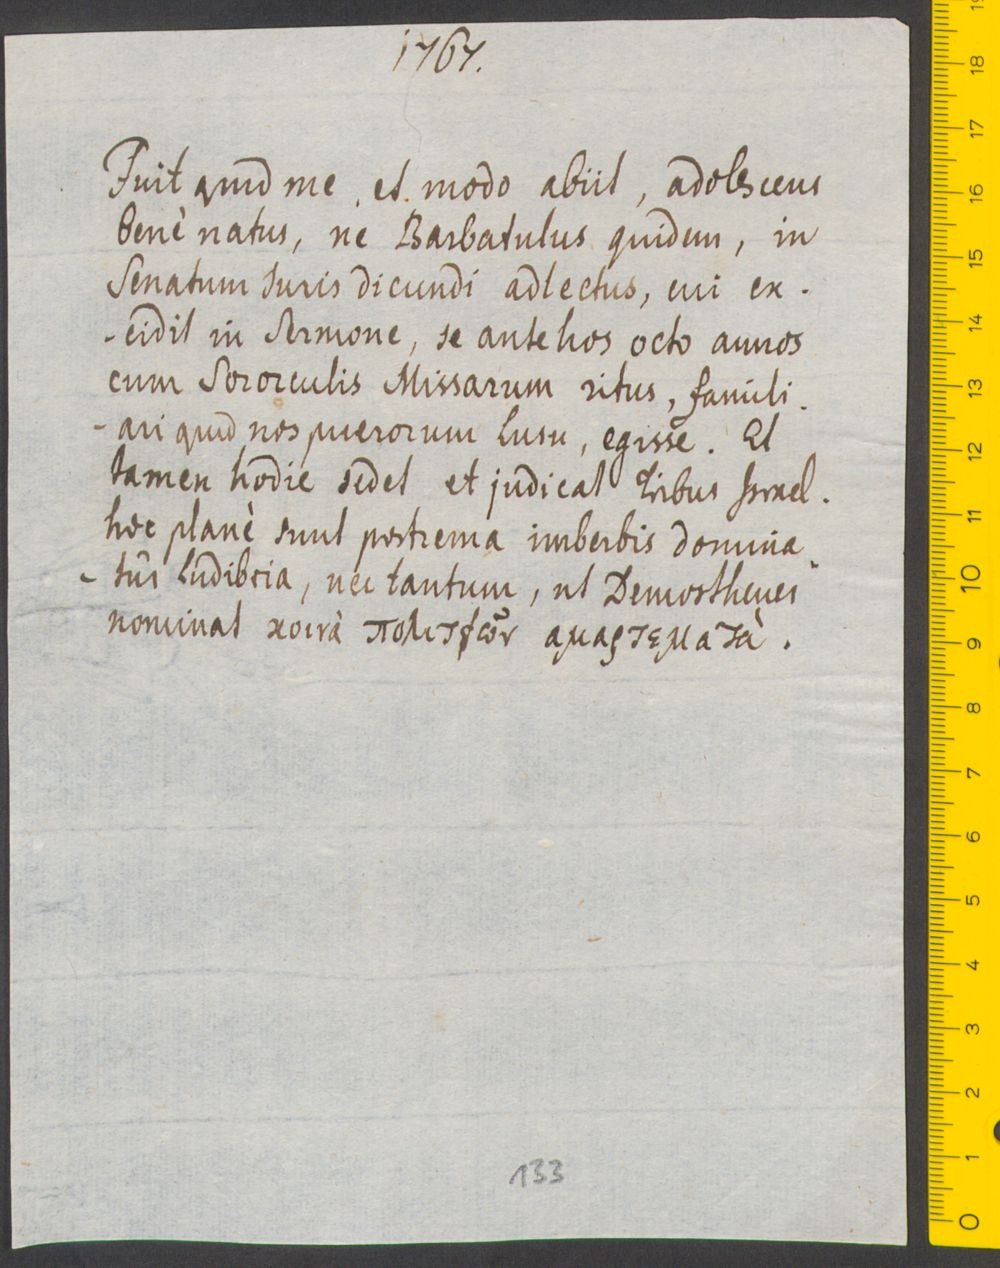 1767.
Fuit apud me, et modo abiit, adolescens
benè natus, ne Barbatulus quidem, in
Senatum Juris dicundi adlectus, cui ex-
-cidit in Sermone, se ante hos octo annos
cum Sororculis Missarum ritus, famili-
-ari apud nos puerorum lusu, egisse. Et
tamen hodie sedet et judicat Tribus Israel.
hoc planè sunt postrema imberbis domina-
-tûs ludibria, nec tantum, ut Demosthenes
nominat κοινὰ πολιτ῀ων αμαρτεματὰ.
133
0 1 2 3 4 5 6 7 8 9 10 11 12 13 14 15 16 17 18 19